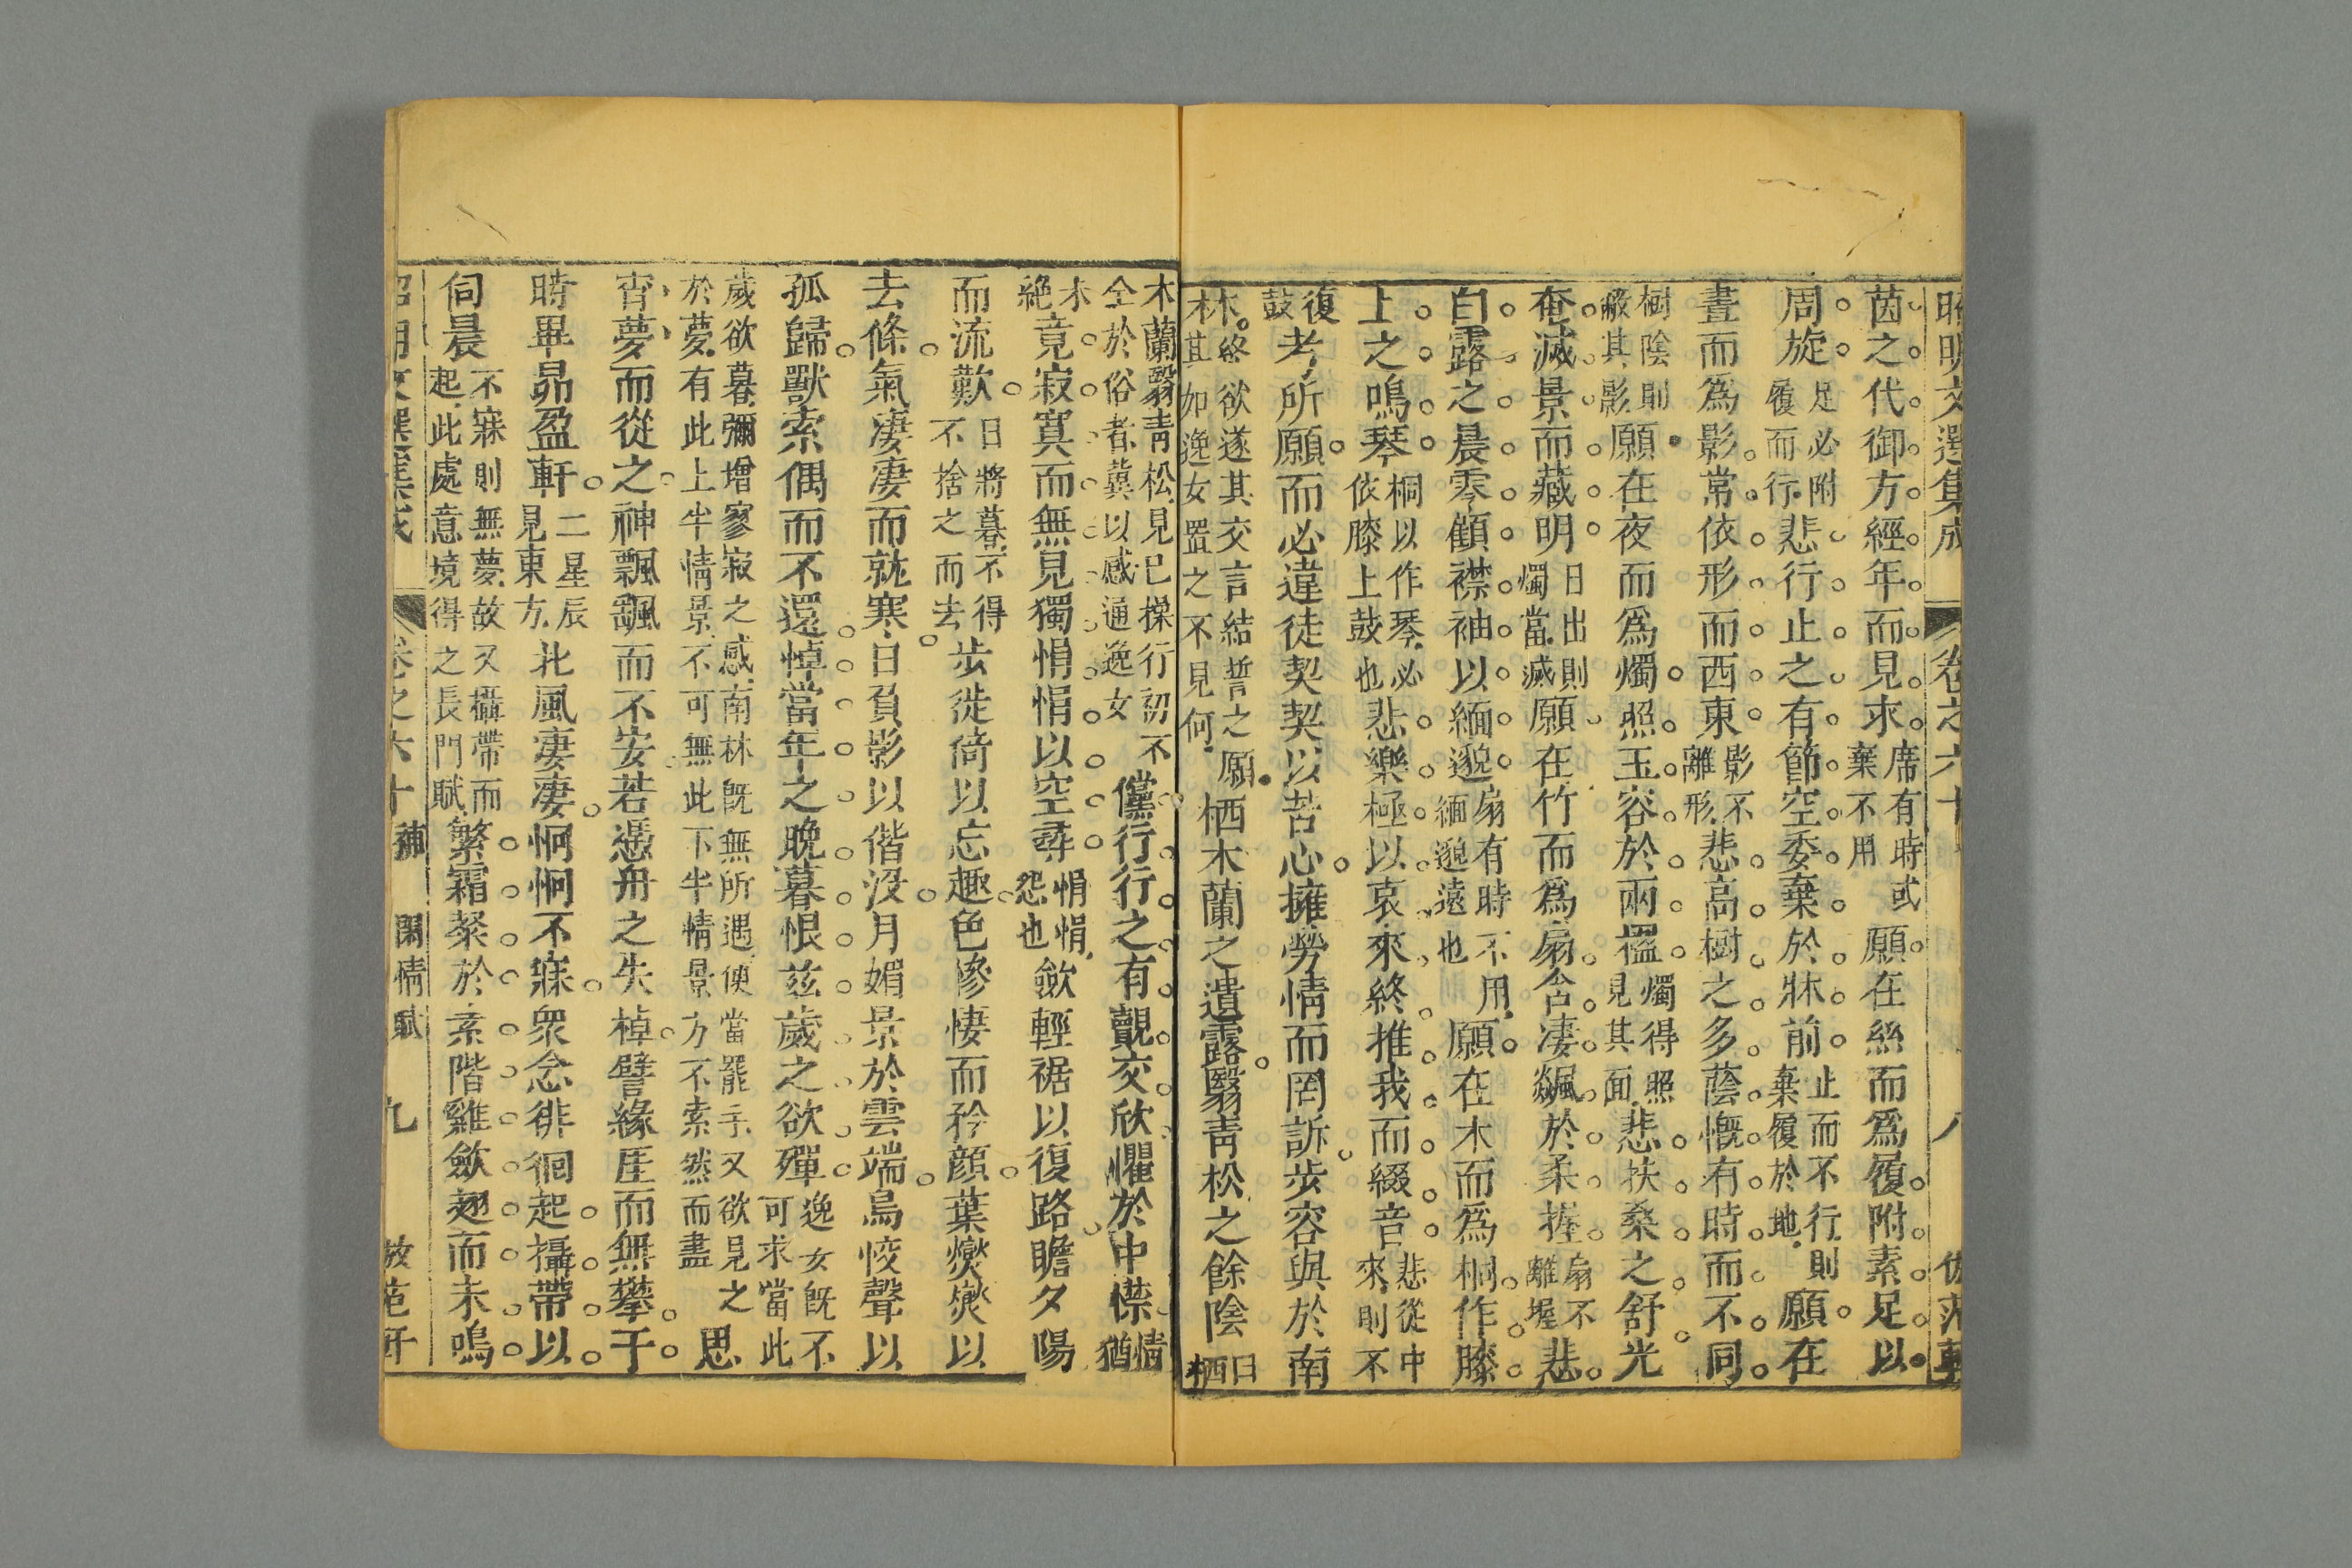 昭明文選集成 卷之六十 八
茵之代御方經年而見求席有時或棄不用願在絲而爲履附素足以
周旋足必附履而行悲行止之有節空委棄於牀前止而不行則棄履於地願在
晝而爲影常依形而西東影不離形悲高樹之多蔭慨有時而不同
樹陰則蔽其影願在夜而爲燭照玉容於兩楹燭得照見其面悲扶桑之舒光
奄滅景而藏明日出則燭當滅願在竹而爲扇含淒飇於柔握扇不離握悲
白露之晨零顧襟袖以緬邈扇有時不用緬邈遠也願在木而爲桐作膝
上之鳴琴桐以作琴必依膝上鼓也悲樂極以哀來終推我而綴音悲從中來則不
復鼓考所願而必違徒契契以苦心擁勞情而罔訴步容與於南
林終欲遂其交言結誓之願其如逸女置之不見何栖木蘭之遺露翳青松之餘陰日栖
木蘭翳青松見已操行初不仝於俗者冀以感通逸女儻行行之有覿交欣懼於中襟情猶
未絕竟寂寞而無見獨悁悁以空尋悁悁怨也斂輕裾以復路瞻夕陽
而流歎日將暮不得不捨之而去步徙倚以忘趣色慘悽而矜顏葉爕爕以
去條氣凄凄而就寒日負影以偕沒月媚景於雲端鳥恔聲以
孤歸獸索偶而不還悼當年之晚暮恨茲歲之欲殫逸女既不可求當此
歲欲暮彌增寥寂之感南林既無所遇便當罷手又欲見之於夢有此上半情景不可無此下半情景方不索然而盡思
宵夢而從之神飄颻而不安若憑舟之失棹譬緣厓而無攀于
時畢昴盈軒二星辰見東方北風凄凄恫恫不寐衆念徘徊起攝帶以
伺晨不寐則無夢故又攝帶而起此處意境得之長門賦繁霜粲於素階雞斂翅而未鳴
昭明文選集成 卷之六十 補 閑情賦 九